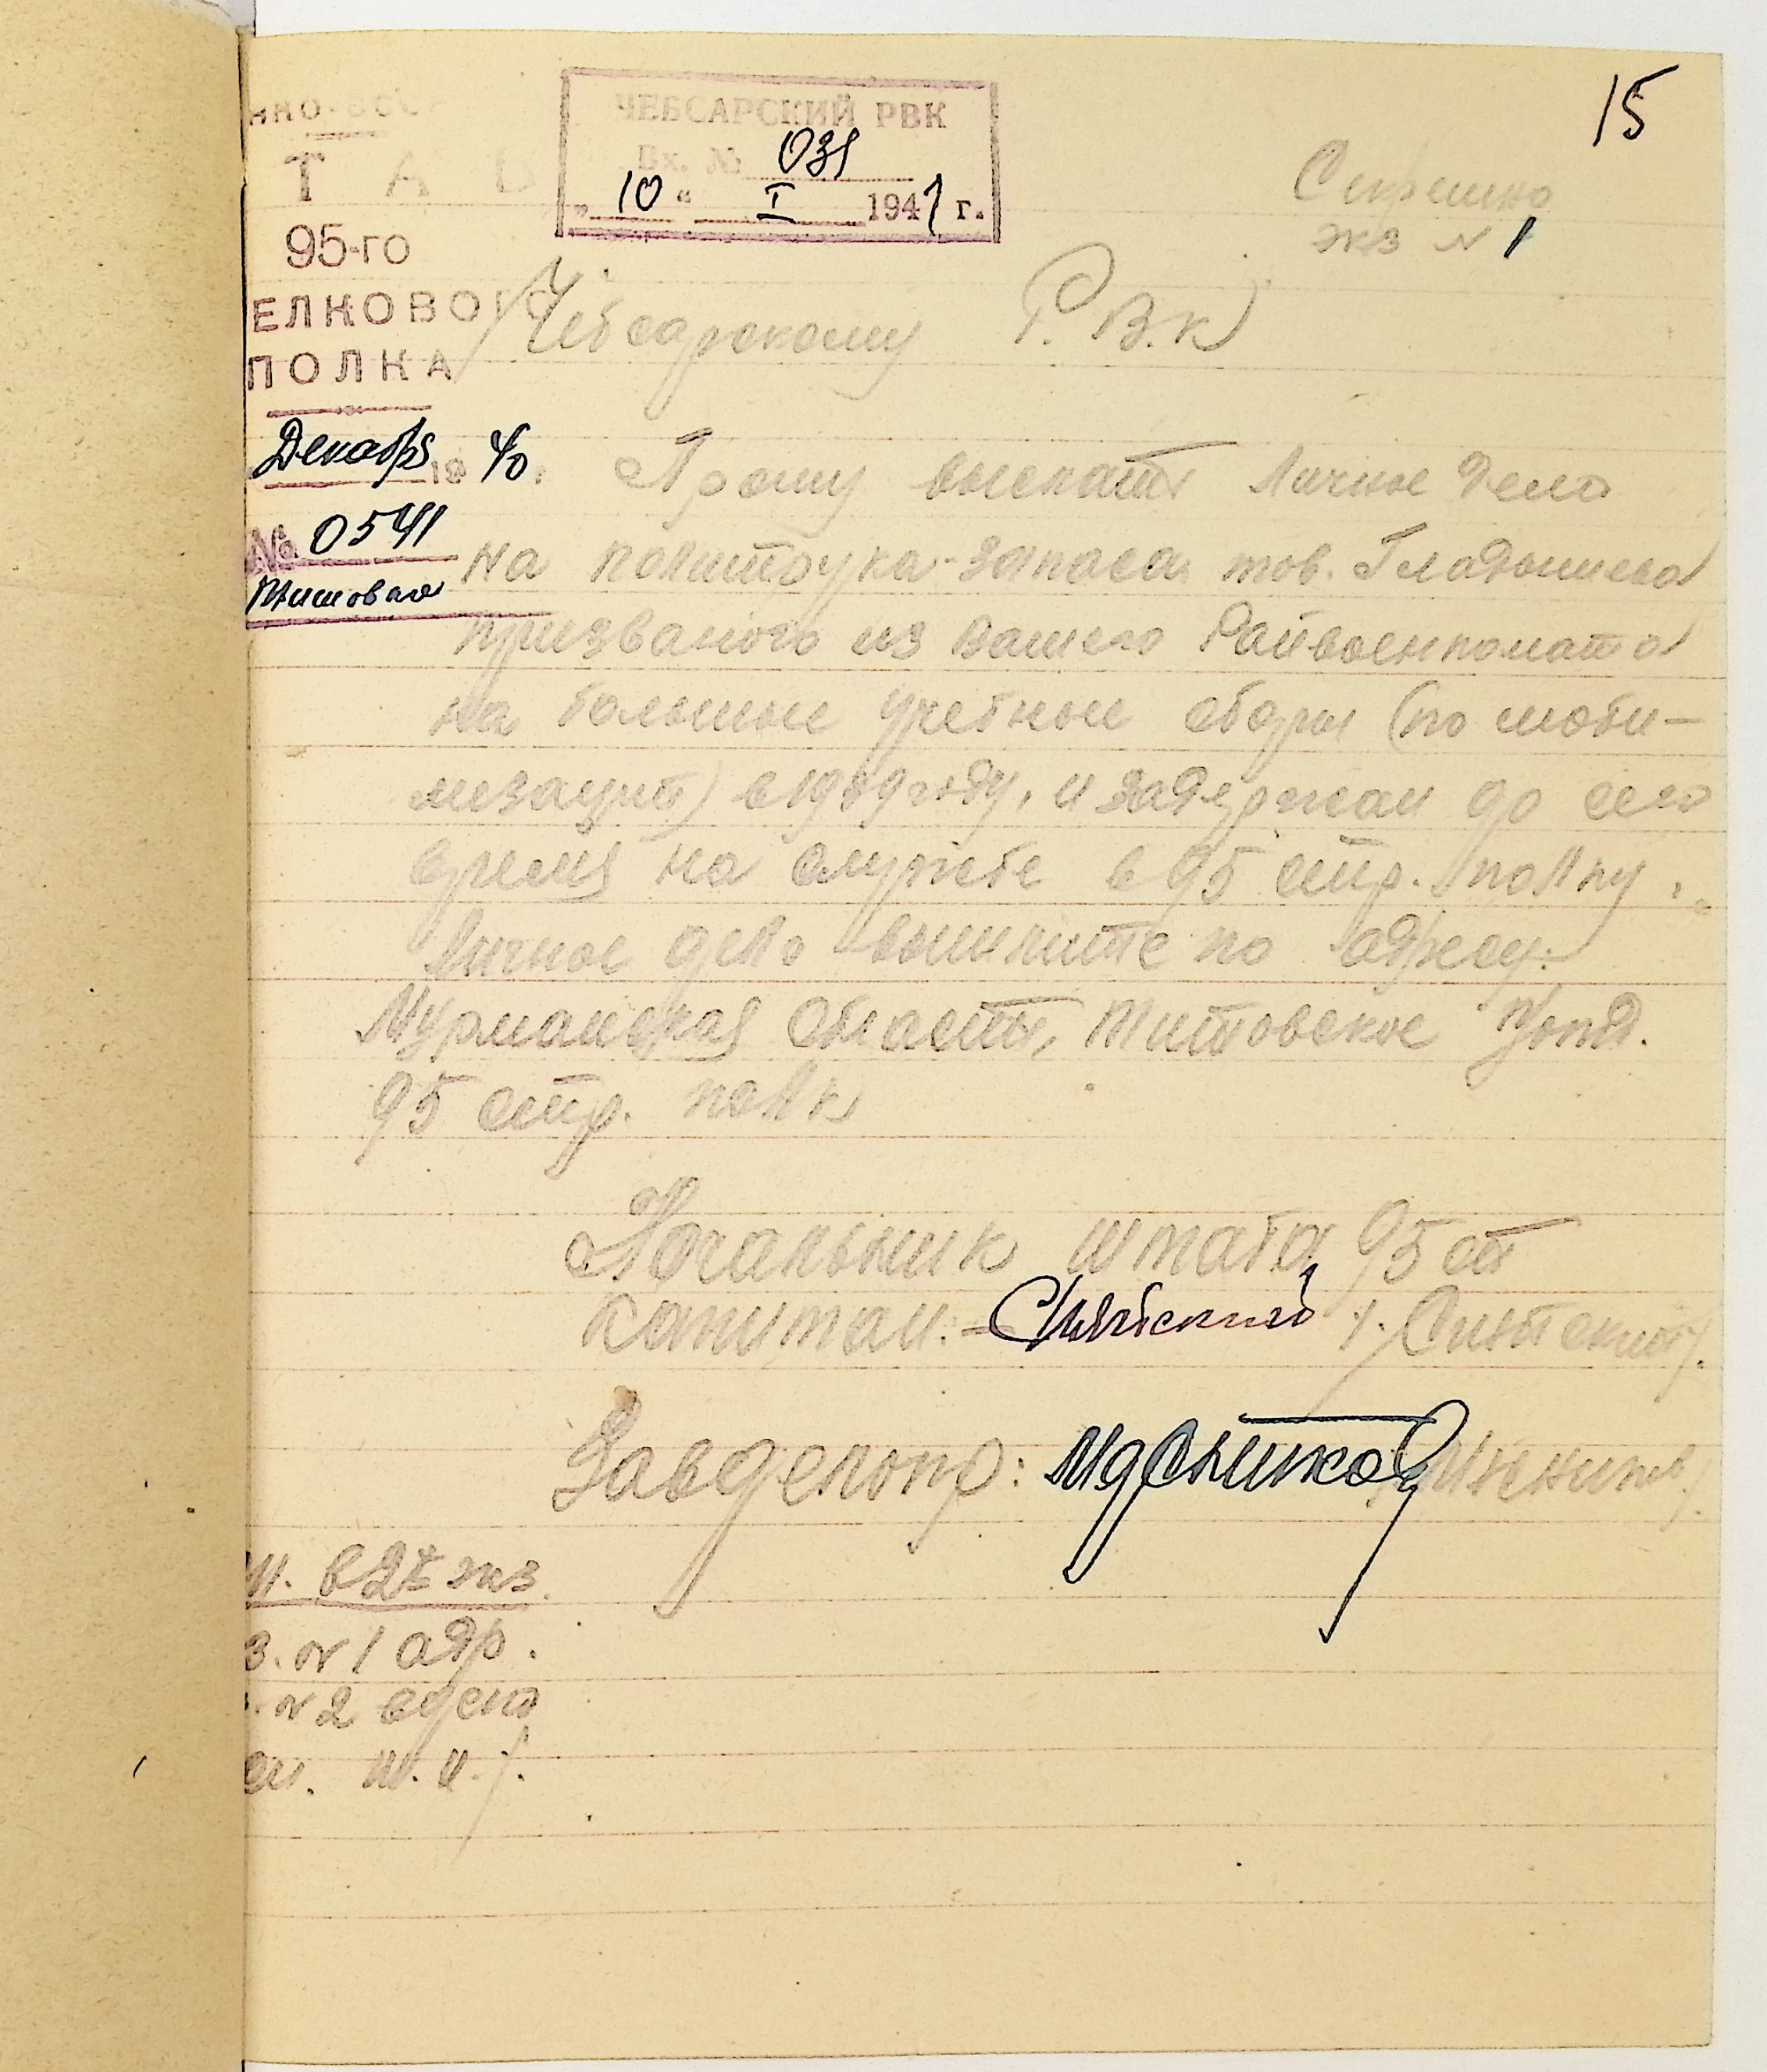 15
ЧЕБСАРСКИЙ РВК
Вх. № 031
„10“ I 1941 г.
Секретно
экз № 1
Т А Б
95-го
ЕЛКОВОГО
ПОЛКА
Декабря 1940.
№ 0541
Чебсарскому Р.В.К
Прошу выслать Личное дело
на политрука-запаса тов. Гладышева
призваного из Вашего Райвоенкомата
на большие учебные сборы (по моби-
лизации) в 1939 году, и задержан до сего
время на службе в 95 стр. полку.
Личное дело вышлите по адресу:
Мурманская область, Титовское
95 стр. полк
Начальник штаба 95 сп
Капитан:
Завделопр:
в 2х экз.
з. № 1 адр.
. № 2 в дело